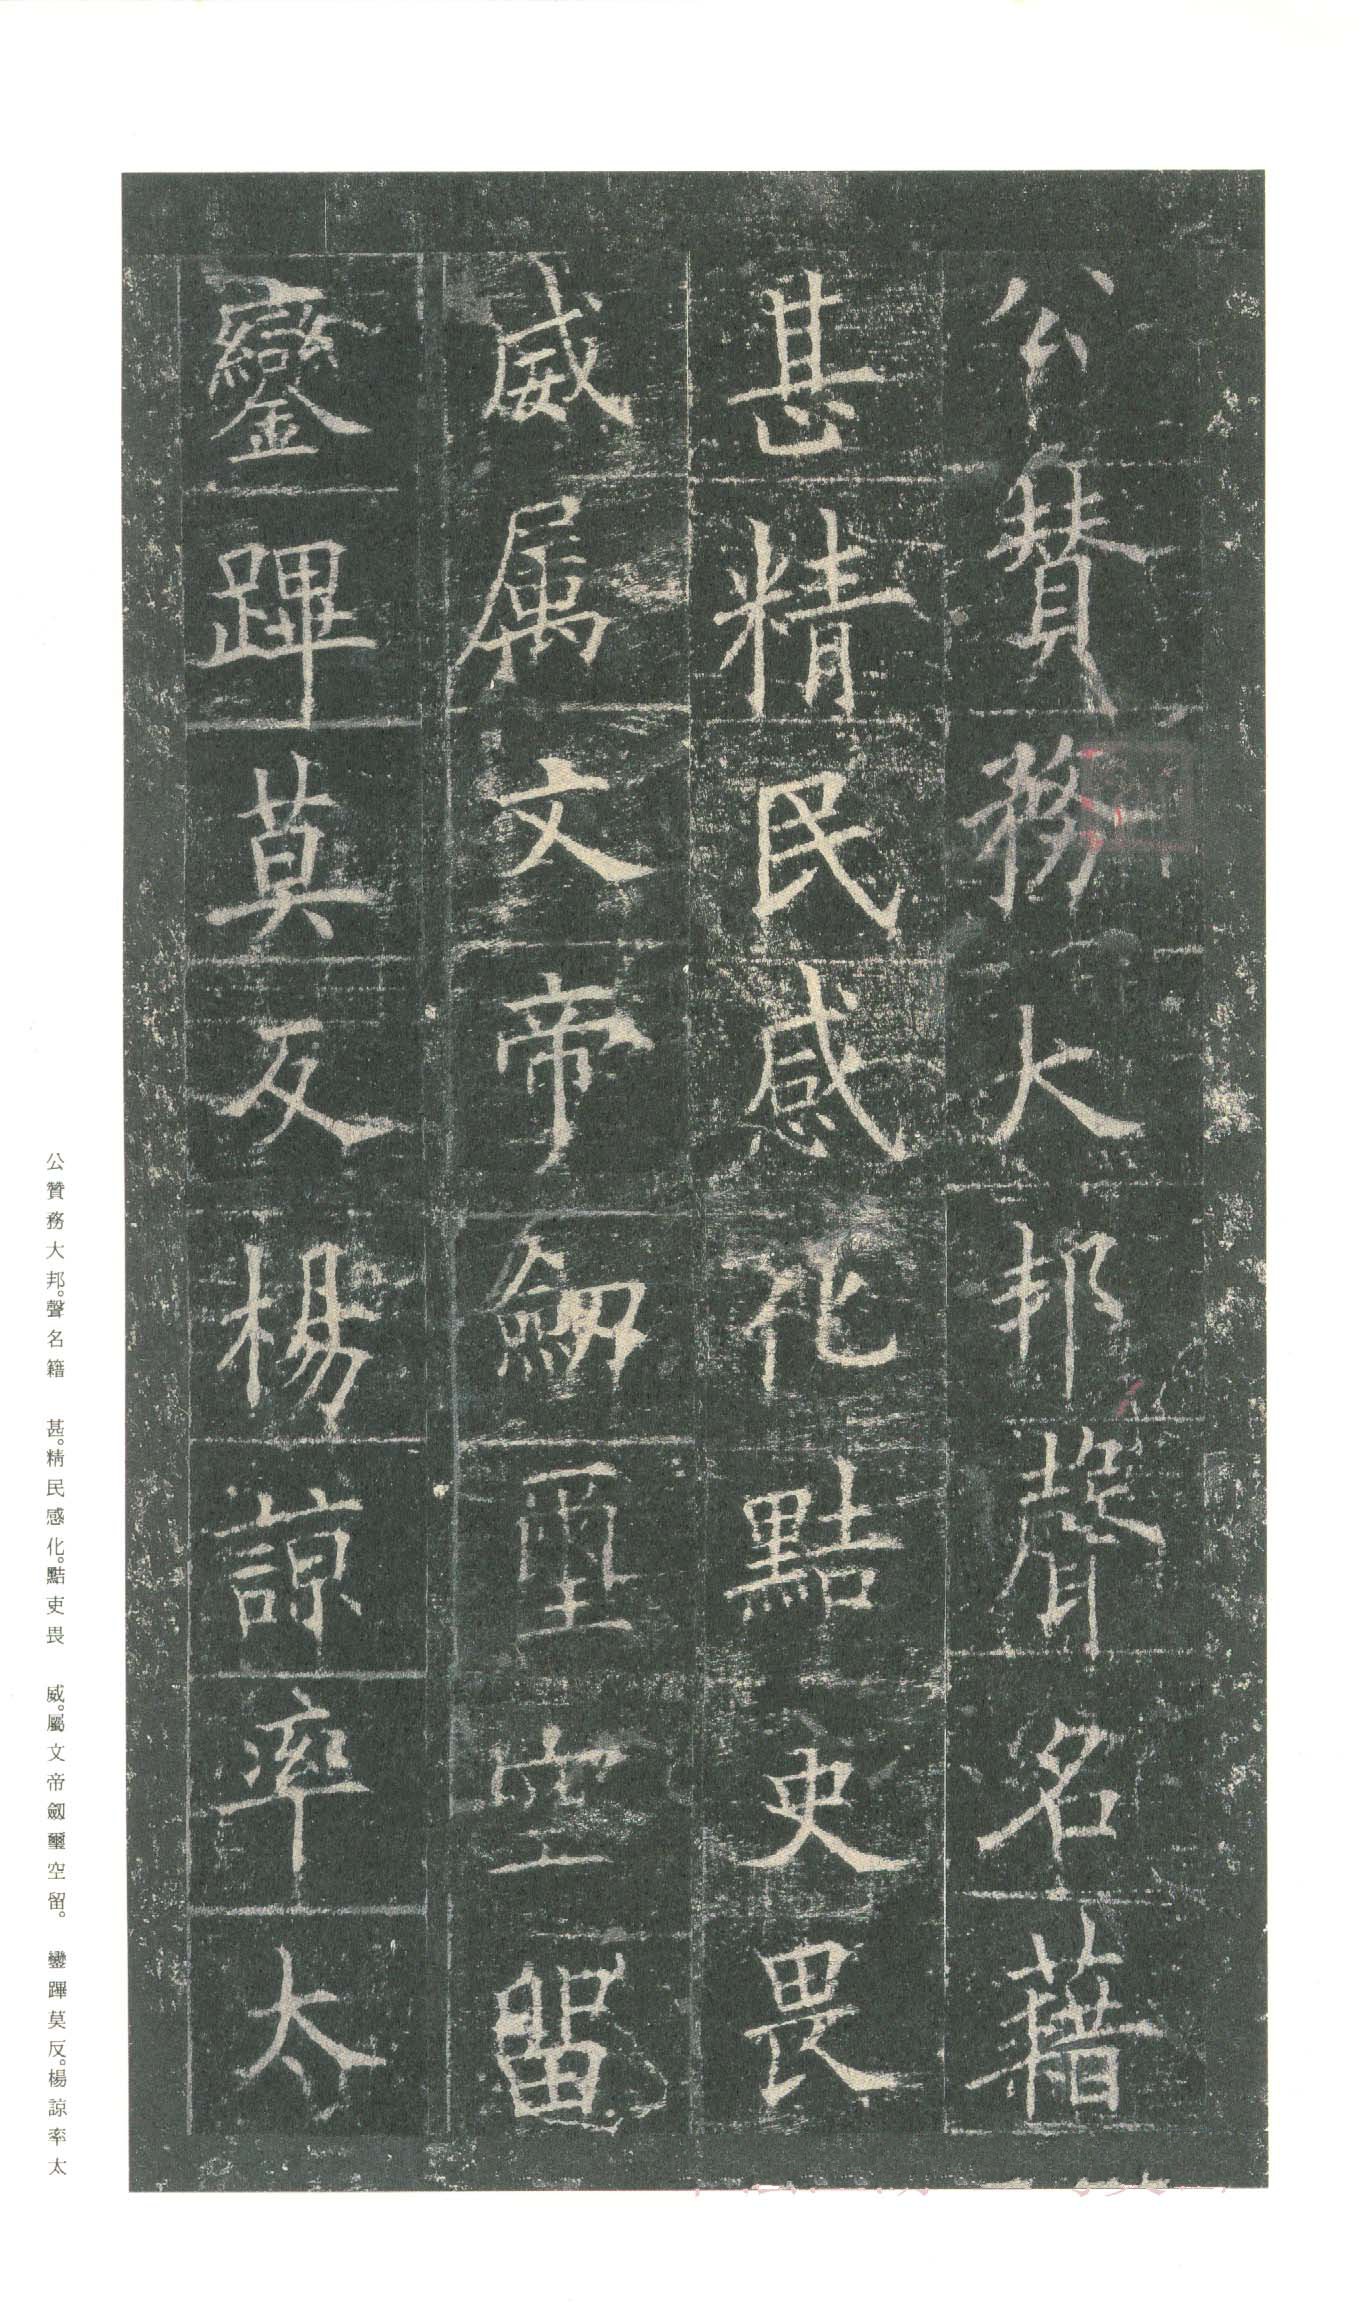 公賛務大邦聲名藉
甚精民感化黠吏畏
威属文帝劒璽空留
鑾蹕莫反楊諒率太
公贊務大邦。聲名籍　甚。精民感化。黠吏畏　威。屬文帝劒璽空留。　鑾蹕莫反。楊諒率太